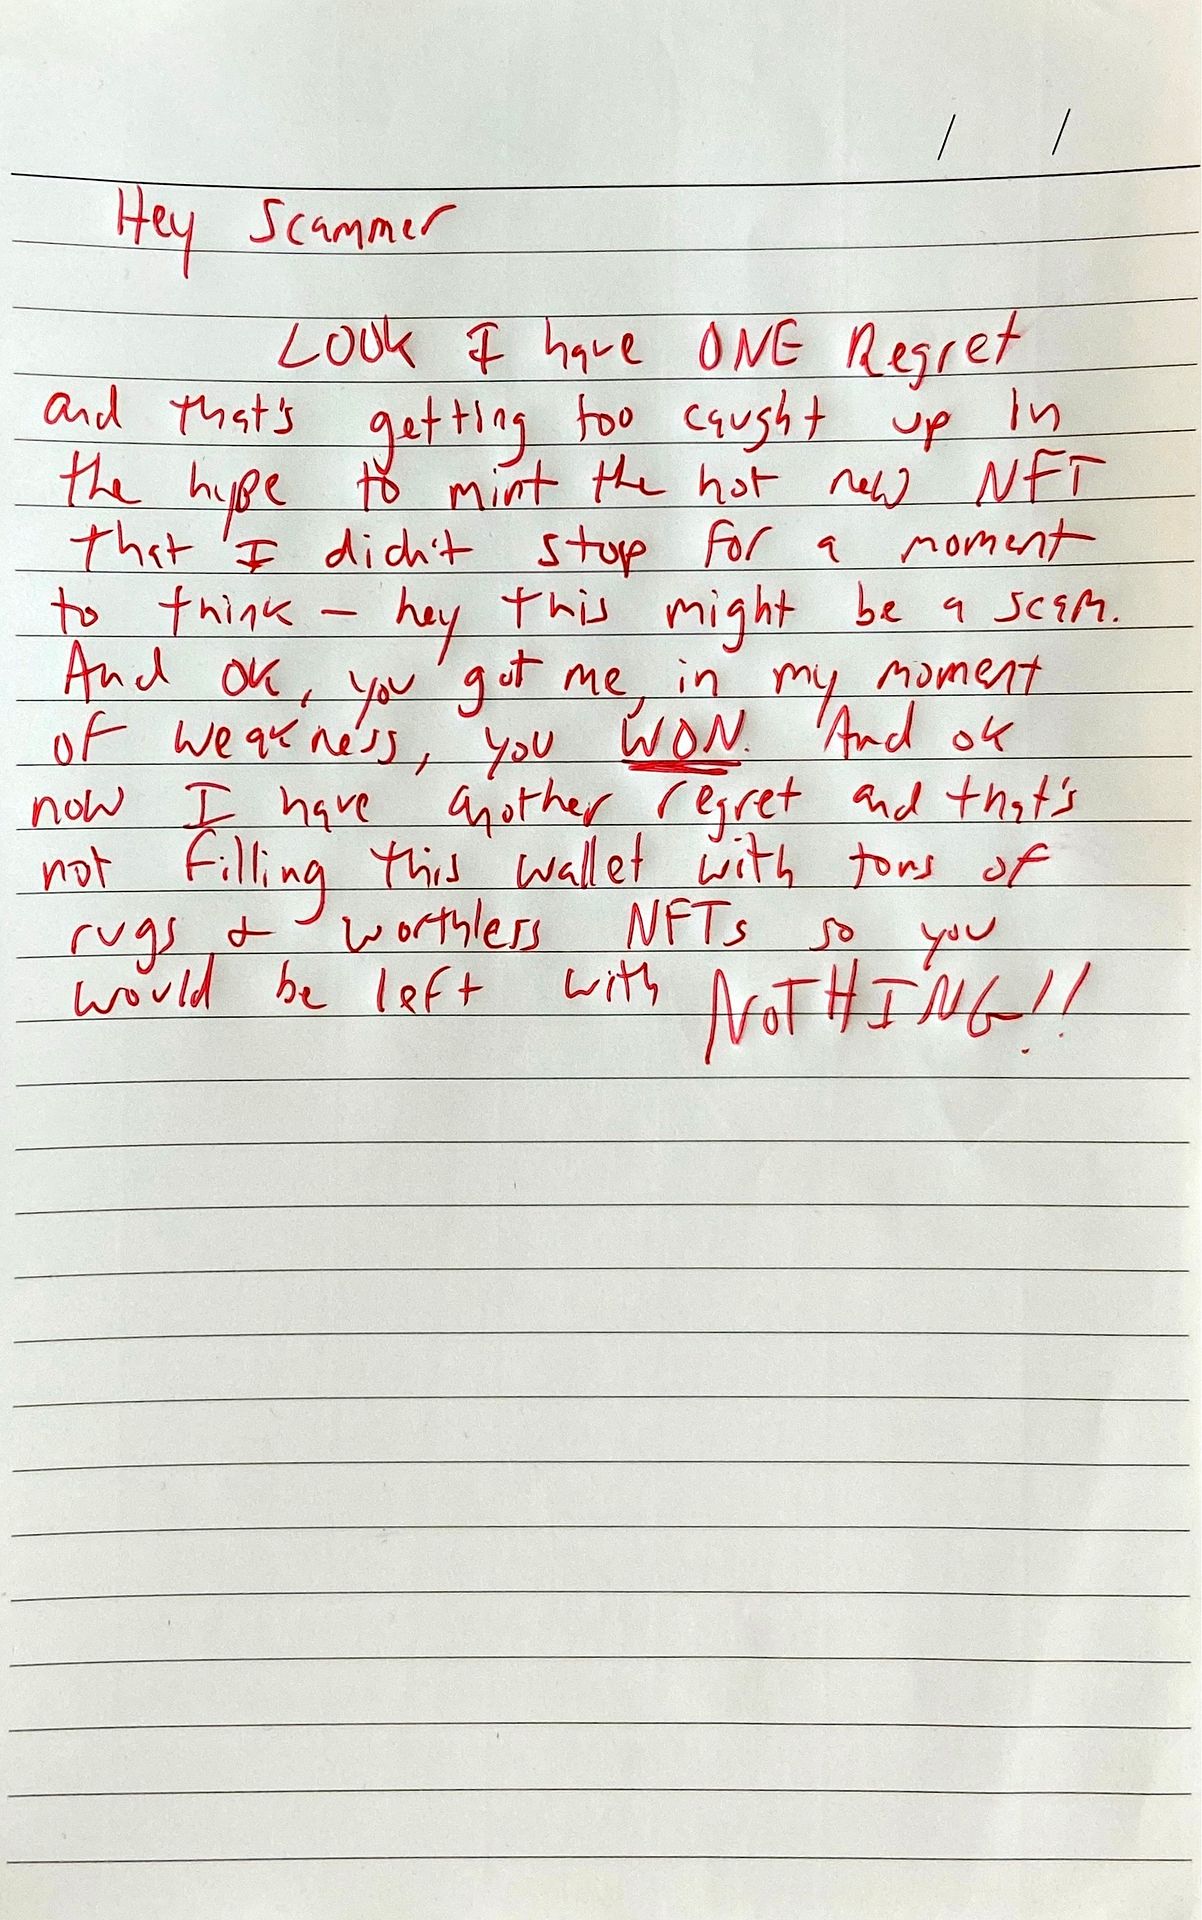 / /
Hey Scammer
LOOK I have ONE Regret
and that's getting too caught up in
the hype to mint the hot new NFT
that I didn't stop for a moment
to think – hey this might be a scam.
And OK, you got me, in my moment
of weakness, you WON. And ok
now I have another regret and that's
not filling this wallet with tons of
rugs & worthless NFTs so you
would be left with NOTHING!!